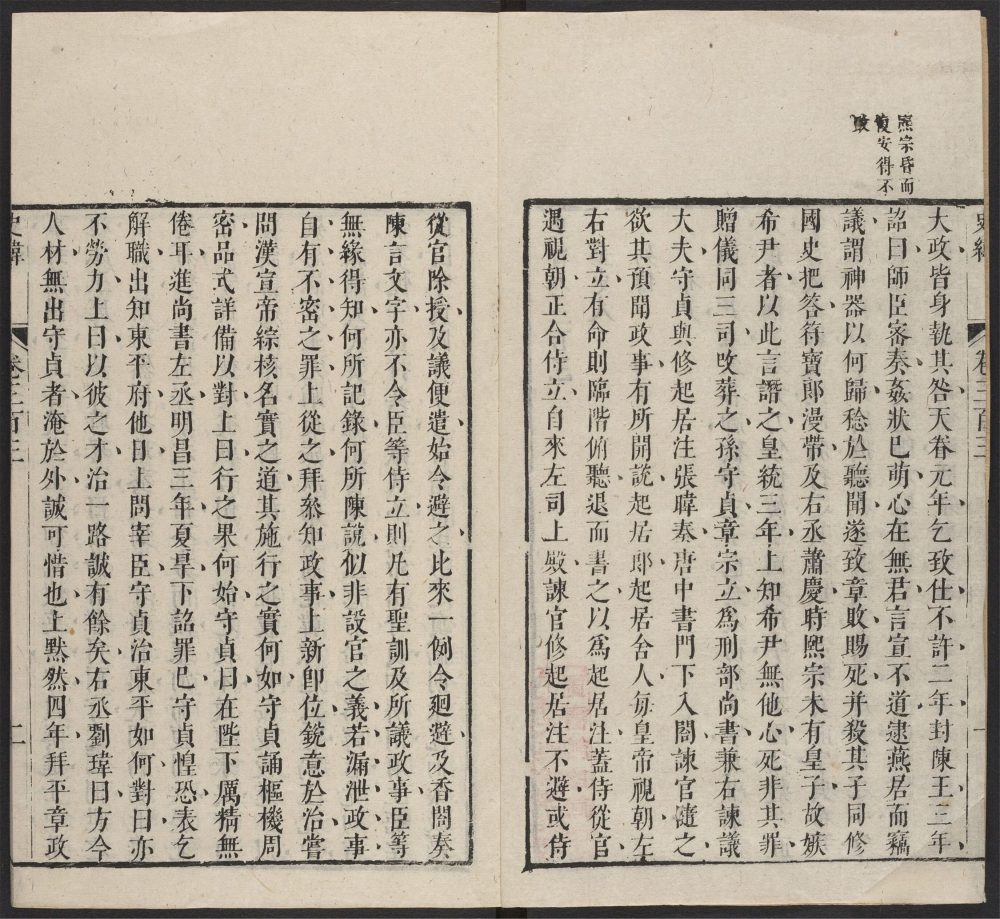 熙宗昏而
愎安得不
敗
史緯
卷三百三
一
大政皆身執其咎天眷元年乞致仕不許二年封陳王三年
詔曰師臣密奏姦狀巳萌心在無君言宣不道逮燕居而竊
議謂神器以何歸稔於聽聞遂致章敗賜死并殺其子同修
國史把答符寶郎漫帶及右丞蕭慶時熙宗未有皇子故嫉
希尹者以此言譖之皇統三年上知希尹無他心死非其罪
贈儀同三司改葬之孫守貞章宗立爲刑部尚書兼右諫議
大夫守貞與修起居注張暐奏唐中書門下入閤諫官隨之
欲其預聞政事有所開說起居郎起居舍人每皇帝視朝左
右對立有命則臨階俯聽退而書之以爲起居注蓋侍從官
遇視朝正合侍立自來左司上殿諫官修起居注不避或侍
從官除授及議便遣始令避之比來一例令廻避及香閤奏
陳言文字亦不令臣等侍立則凡有聖訓及所議政事臣等
無緣得知何所記錄何所陳說似非設官之義若漏泄政事
自有不密之罪上從之拜叅知政事上新卽位銳意於治嘗
問漢宣帝綜核名實之道其施行之實何如守貞誦樞機周
密品式詳備以對上曰行之果何始守貞曰在陛下厲精無
倦耳進尚書左丞明昌三年夏旱下詔罪巳守貞惶恐表乞
解職出知東平府他日上問宰臣守貞治東平如何對曰亦
不勞力上曰以彼之才治一路誠有餘矣右丞劉瑋曰方今
人材無出守貞者淹於外誠可惜也上默然四年拜平章政
史緯
卷三百三
二